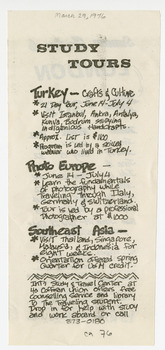 March 29, 1976
STUDY
TOURS
Turkey - Crafts & Culture
* 21 Day Tour, June 14-July 4
* Visit Istanbul, Ankra, Antalya,
Konya, Bodrum studying
indigenous Handcrafts.
* Approx. Cost is $1100
* Program is led by a skilled
weaver who lived in Turkey.
Photo Europe -
* June 14 - July 4
* Learn the fundamentals
of photography while
traveling through Italy,
Germany & Switzerland.
* Tour is led by a professional
Photographer at $1000
Southeast Asia -
* Visit Thailand, Singapore,
Malaysia & Indonesia for
eight weeks.
* Orientation offered Spring
Quarter for U of M credit.
Int'l Study & Travel Center at
40 Coffman Union offers free
counseling service and library
to the traveling student.
Drop in for help with study
and work abroad or call
373-0180
76